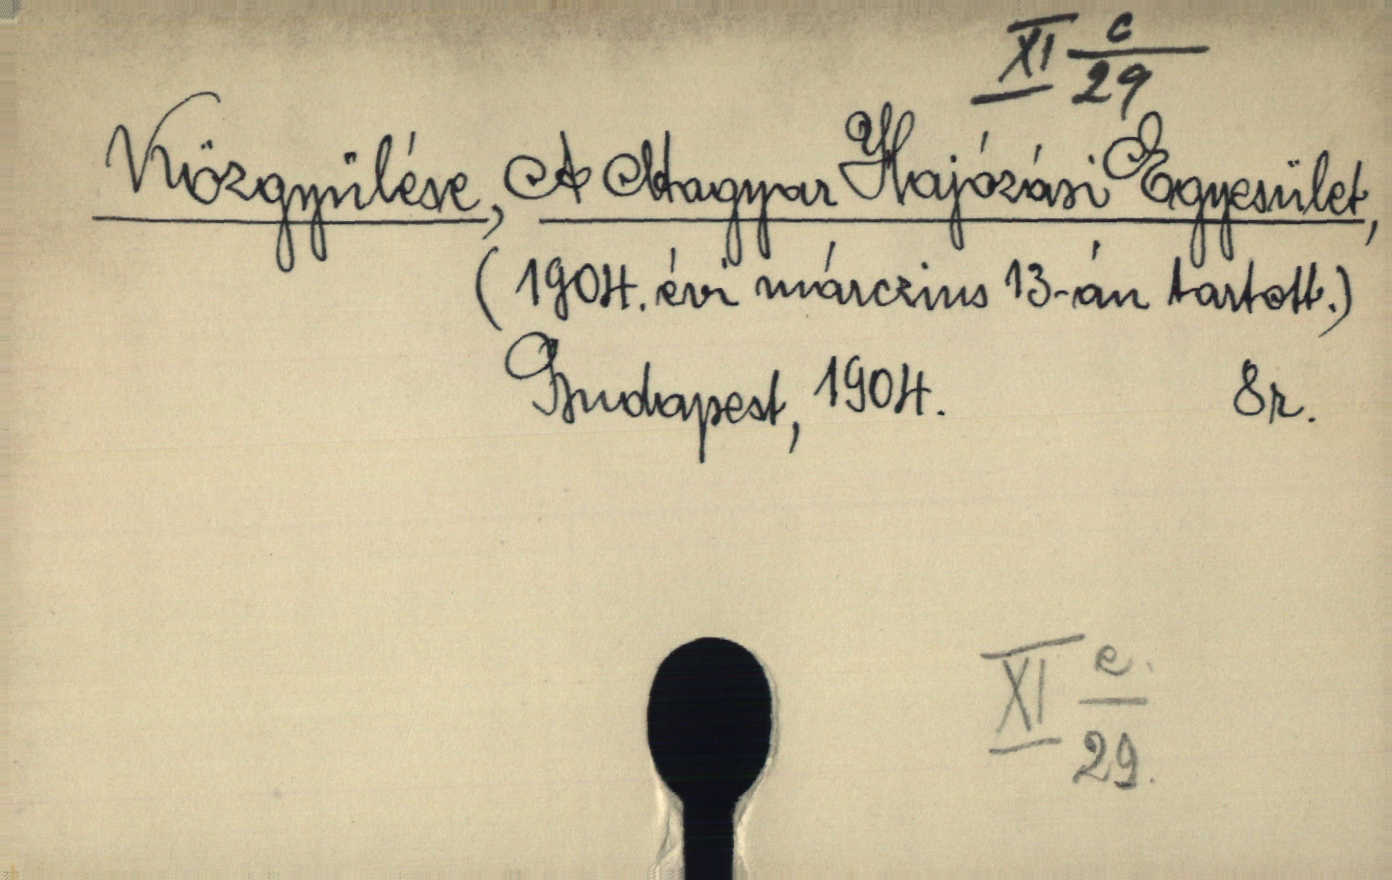 XI c/29
Közgyülése, A Magyar Hajózási Egyesület,
(1904. évi márczius 13-án tartott.)
Budapest, 1904. 8r.
XI e./29.